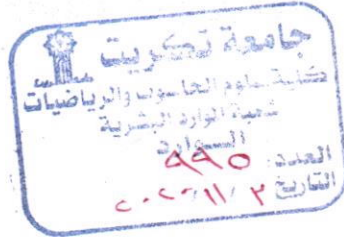 جامعة تكريت
كلية علوم الحاسوب والرياضيات
شعبة الموارد البشرية
الـــواردة
العدد: ٩٩٥
التاريخ ٢ / ١١ /